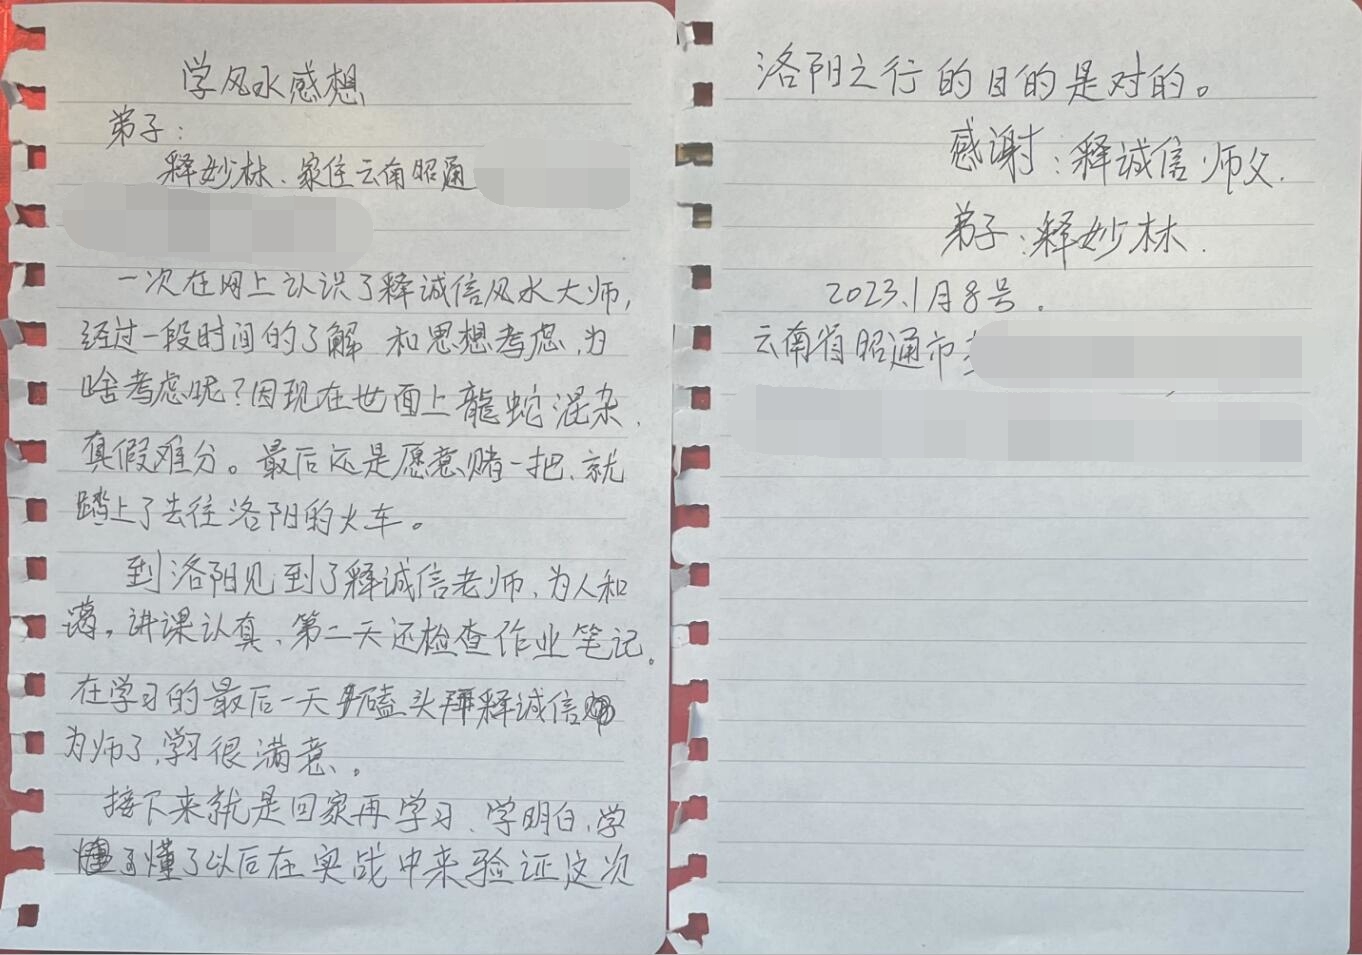 学风水感想
弟子：
释妙林、家住云南昭通
一次在网上认识了释诚信风水大师，
经过一段时间的了解 和思想考虑，为
啥考虑呢？因现在世面上龍蛇混杂，
真假难分。最后还是愿意赌一把、就
踏上了去往洛阳的火车。
到洛阳见到了释诚信老师，为人和
蔼。讲课认真、第二天还检查作业笔记。
在学习的最后一天 磕头拜释诚信
为师了，学习很满意。
接下来就是回家再学习、学明白，学
懂了以后在实战中来验证这次
洛阳之行的目的是对的。
感谢：释诚信师父．
弟子：释妙林．
2023.1月8号．
云南省昭通市